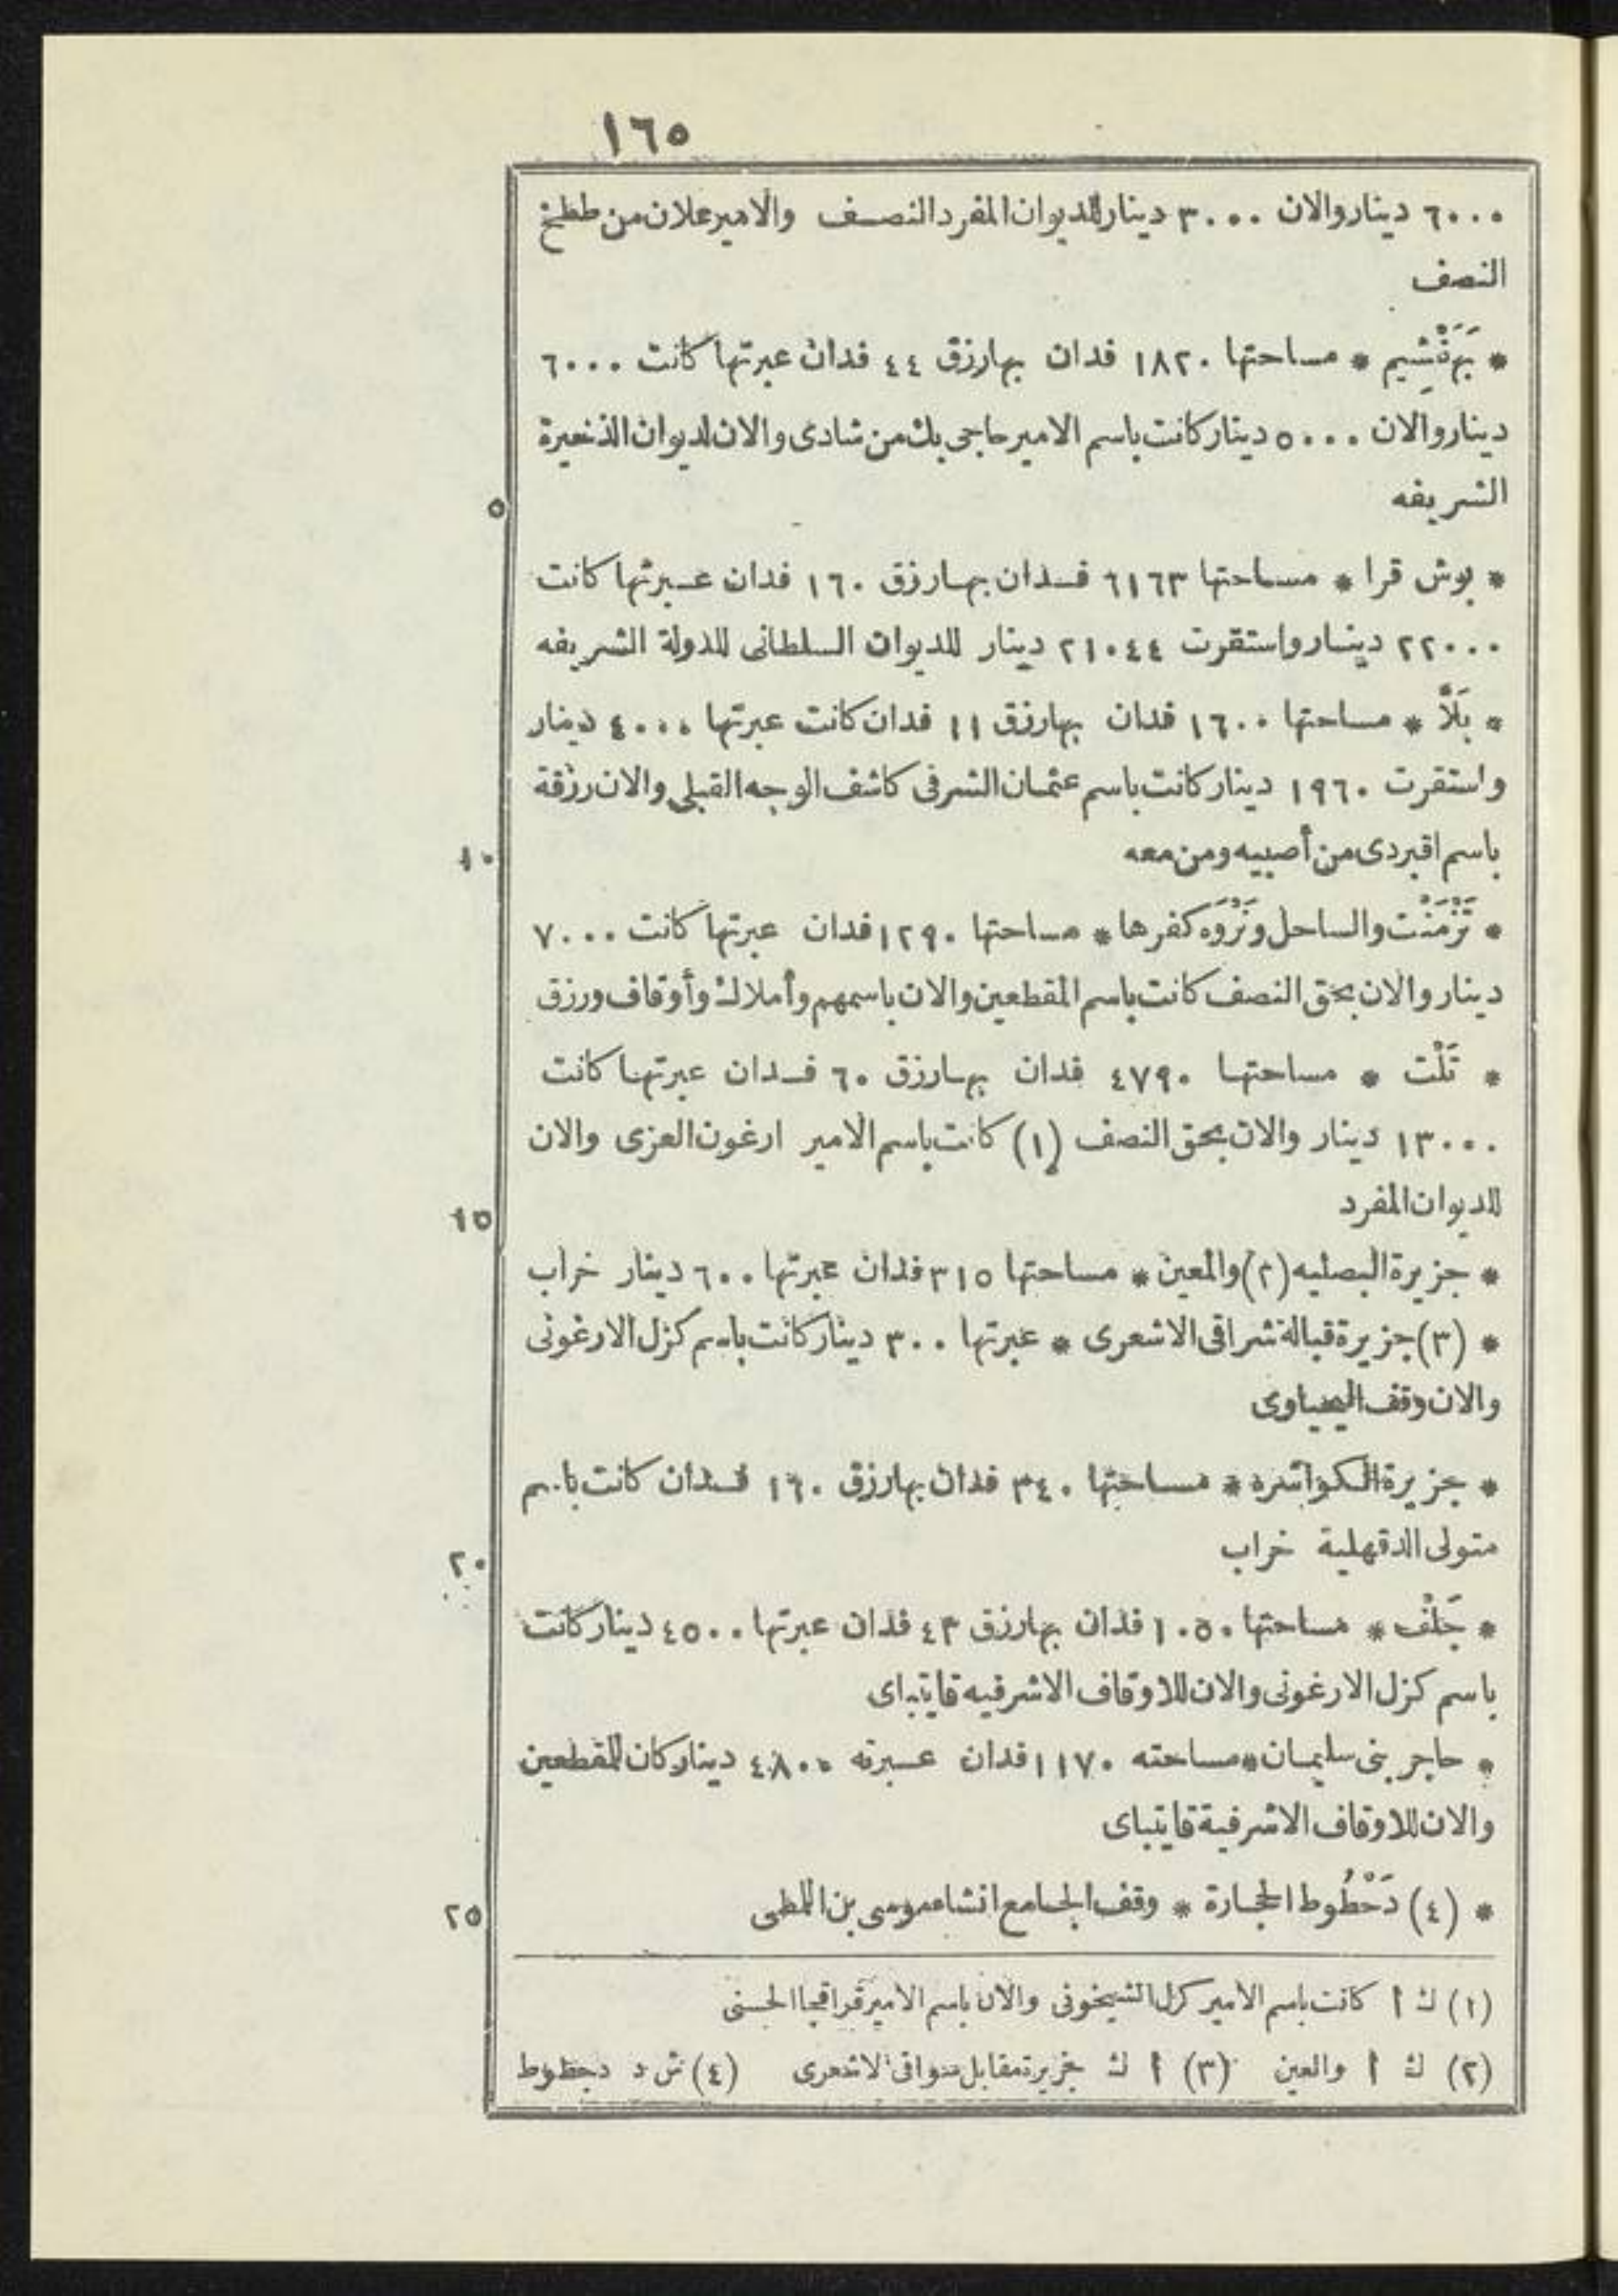 ١٦٥
٦٠٠٠ دينار والان ٣٠٠٠ دينار للديوان المفرد النصف والامير علان من ططخ
النصف
* بَهَرْمَشِيم * مساحتها ١٨٢٠ فدان بها رزق ٤٤ فدان عبرتها كانت ٦٠٠٠
دينار والان ٥٠٠٠ دينار كانت باسم الامير حاجى بك من شادى والان لديوان الذخيرة
الشريفه
٥
* بوش قرا * مساحتها ٦١٦٣ فدان بها رزق ١٦٠ فدان عبرتها كانت
٢٢٠٠٠ دينار واستقرت ٢١٠٤٤ دينار للديوان السلطانى للدولة الشريفه
* بَلَّا * مساحتها ١٦٠٠ فدان بها رزق ١١ فدان كانت عبرتها ٤٠٠٠ دينار
واستقرت ١٩٦٠ دينار كانت باسم عثمان الشرفى كاشف الوجه القبلى والان رزقة
باسم اقبردى من أصبيه ومن معه
١٠
* تَزْمَنْت والساحل ونَزْوَه كفرها * مساحتها ١٢٩٠ فدان عبرتها كانت ٧٠٠٠
دينار والان بحق النصف كانت باسم المقطعين والان باسمهم وأملاك وأوقاف ورزق
* تَلْت * مساحتها ٤٧٩٠ فدان بها رزق ٦٠ فدان عبرتها كانت
١٣٠٠٠ دينار والان بحق النصف (١) كانت باسم الامير ارغون العزى والان
للديوان المفرد
١٥
* جزيرة البصليه (٢) والمعين * مساحتها ٣١٥ فدان عبرتها ٦٠٠ دينار خراب
* (٣) جزيرة قبالة شراقى الاشعرى * عبرتها ٣٠٠ دينار كانت باسم كزل الارغونى
والان وقف اليحياوى
* جزيرة الكوانشره * مساحتها ٣٤٠ فدان بها رزق ١٦٠ فدان كانت باسم
متولى الدقهلية خراب
٢٠
* جَلْف * مساحتها ١٠٥٠ فدان بها رزق ٤٣ فدان عبرتها ٤٥٠٠ دينار كانت
باسم كزل الارغونى والان للاوقاف الاشرفيه قايتباى
* حاجر بنى سليمان * مساحته ١١٧٠ فدان عبرته ٤٨٠٠ دينار كان للمقطعين
والان للاوقاف الاشرفية قايتباى
* (٤) دَحْطُوط الحجارة * وقف الجامع انشا عموسى بن اللطى
٢٥
(١) ك أ كانت باسم الامير كزل الشيخونى والان باسم الامير قراقجا الحسنى
(٢) ك أ والعين (٣) أ ك جزيرة مقابل سواقى الاشعرى (٤) ش د دحظوط